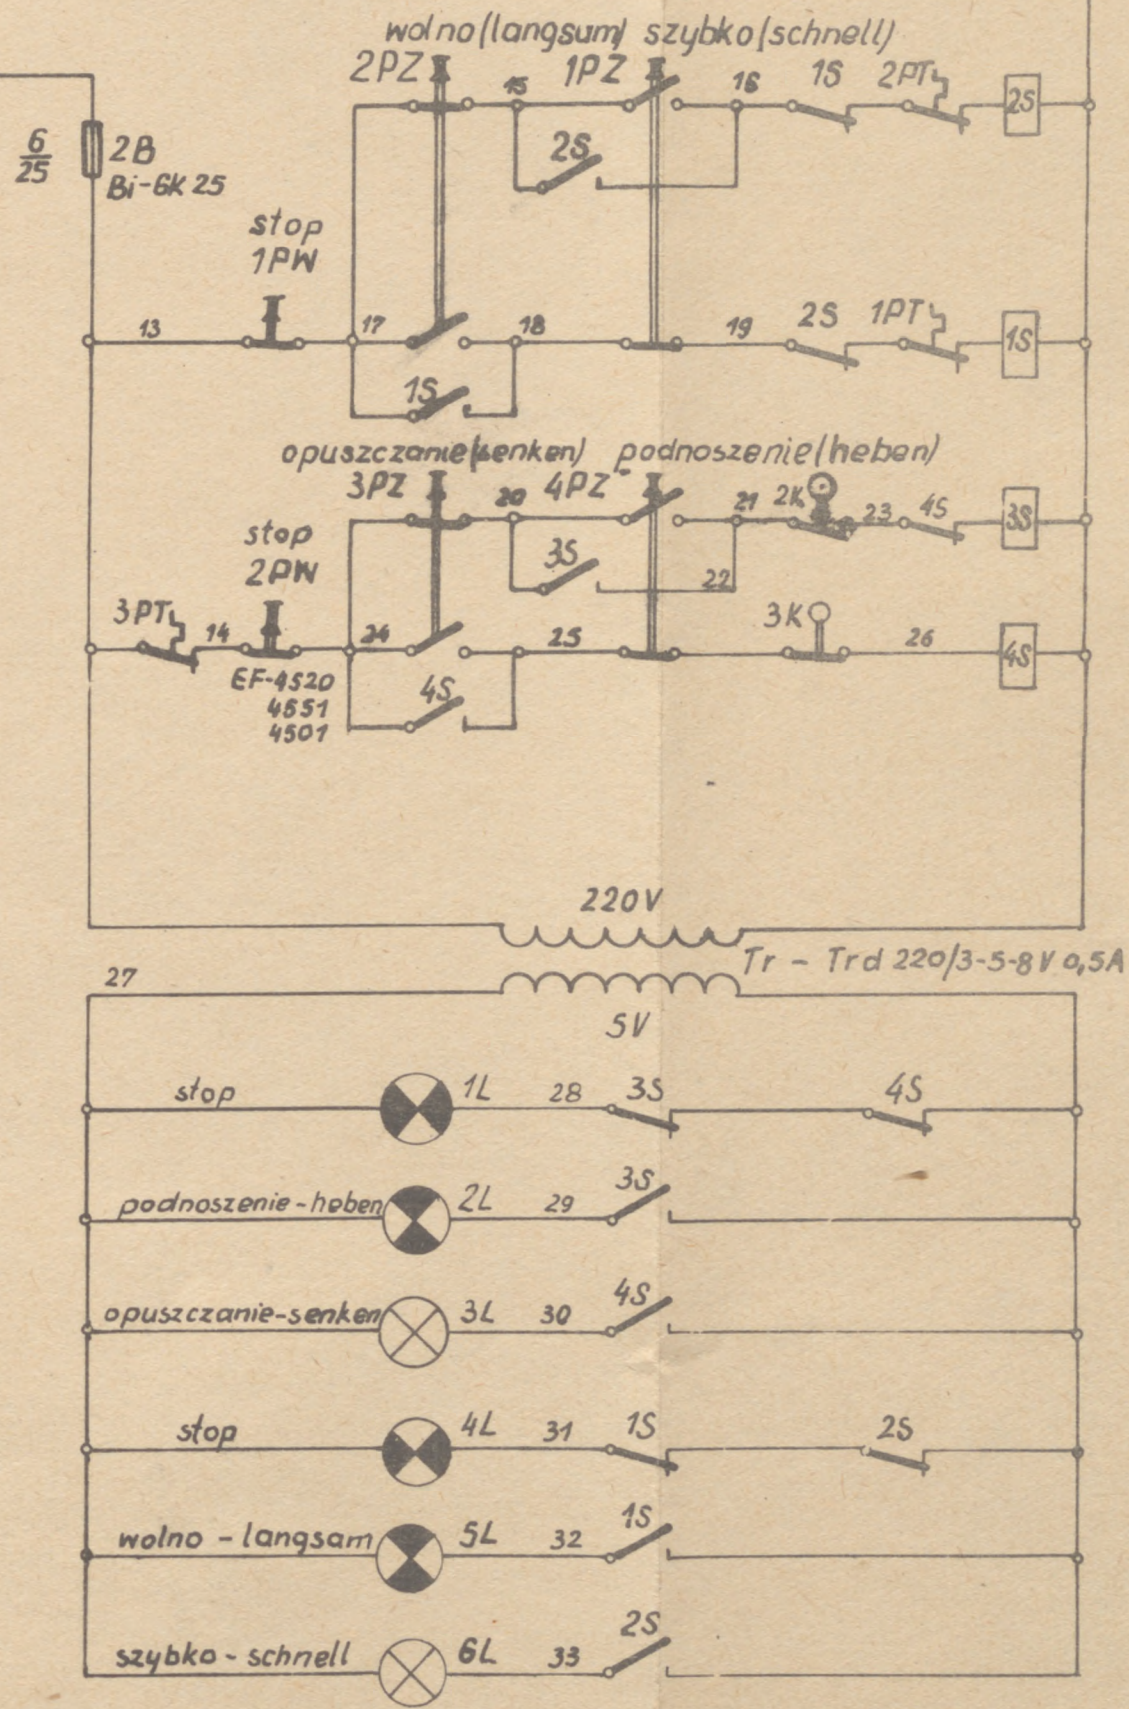 wolno (langsum) szybko (schnell)
2PZ 15 1PZ 16 1S 2PT 2S
6
25
2B
Bi-GK 25
2S
stop
1PW
13 17 18 19 2S 1PT 1S
1S
opuszczanie (senken) podnoszenie (heben)
3PZ 20 4PZ 21 2K 23 4S 3S
stop
2PW
3S 22
3PT 14 24 25 3K 26 4S
EF-4520
4651
4501
4S
220V
Tr - Trd 220/3-5-8V 0,5A
27
5V
stop 1L 28 3S 4S
podnoszenie-heben 2L 29 3S
opuszczanie-senken 3L 30 4S
stop 4L 31 1S 2S
wolno - langsam 5L 32 1S
szybko - schnell 6L 33 2S